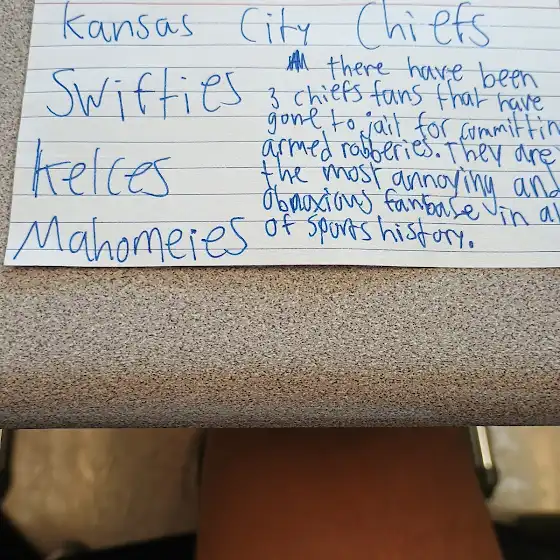 Kansas City Chiefs
Swifties
Kelces
Mahomeies
there have been
3 chiefs fans that have
gone to jail for committin
armed robberies. They are
the most annoying and
obnoxious fanbase in al
of sports history.